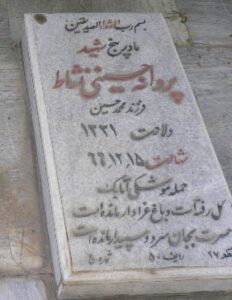 بسم رب الشهدا و الصدیقین
مادر پنج شهید
پروانه حسینی نشاط
فرزند محمد حسین
ولادت ۱۳۲۱
شهادت ۶۶,۱۲,۱۵
حمله موشکی اتابک
گل رفت است و باغ عزادار مانده است
حسرت بجان سرو سپیدار مانده است
۱۷ ردیف ۵۰ شماره